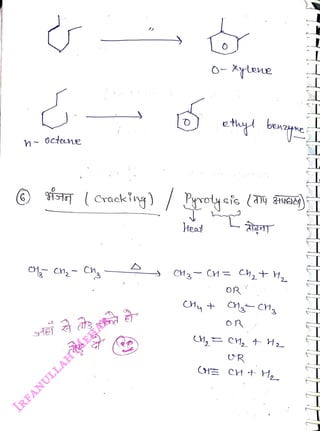 "
O
O- Xylene
n- octane
O
ethyl benzyne
⑥ भंजन ( Cracking ) / Pyrolysis ( ताप अपघटन )
Heat
तोड़ना
CH3- CH2- CH3 Δ CH3 - CH = CH2 + H2
OR
CH4 + CH3- CH3
OR
CH2 = CH2 + H2
OR
CH≡ CH + H2
जहाँ से तोड़ सकते हो
तोड़ दो
IRFANULLAH